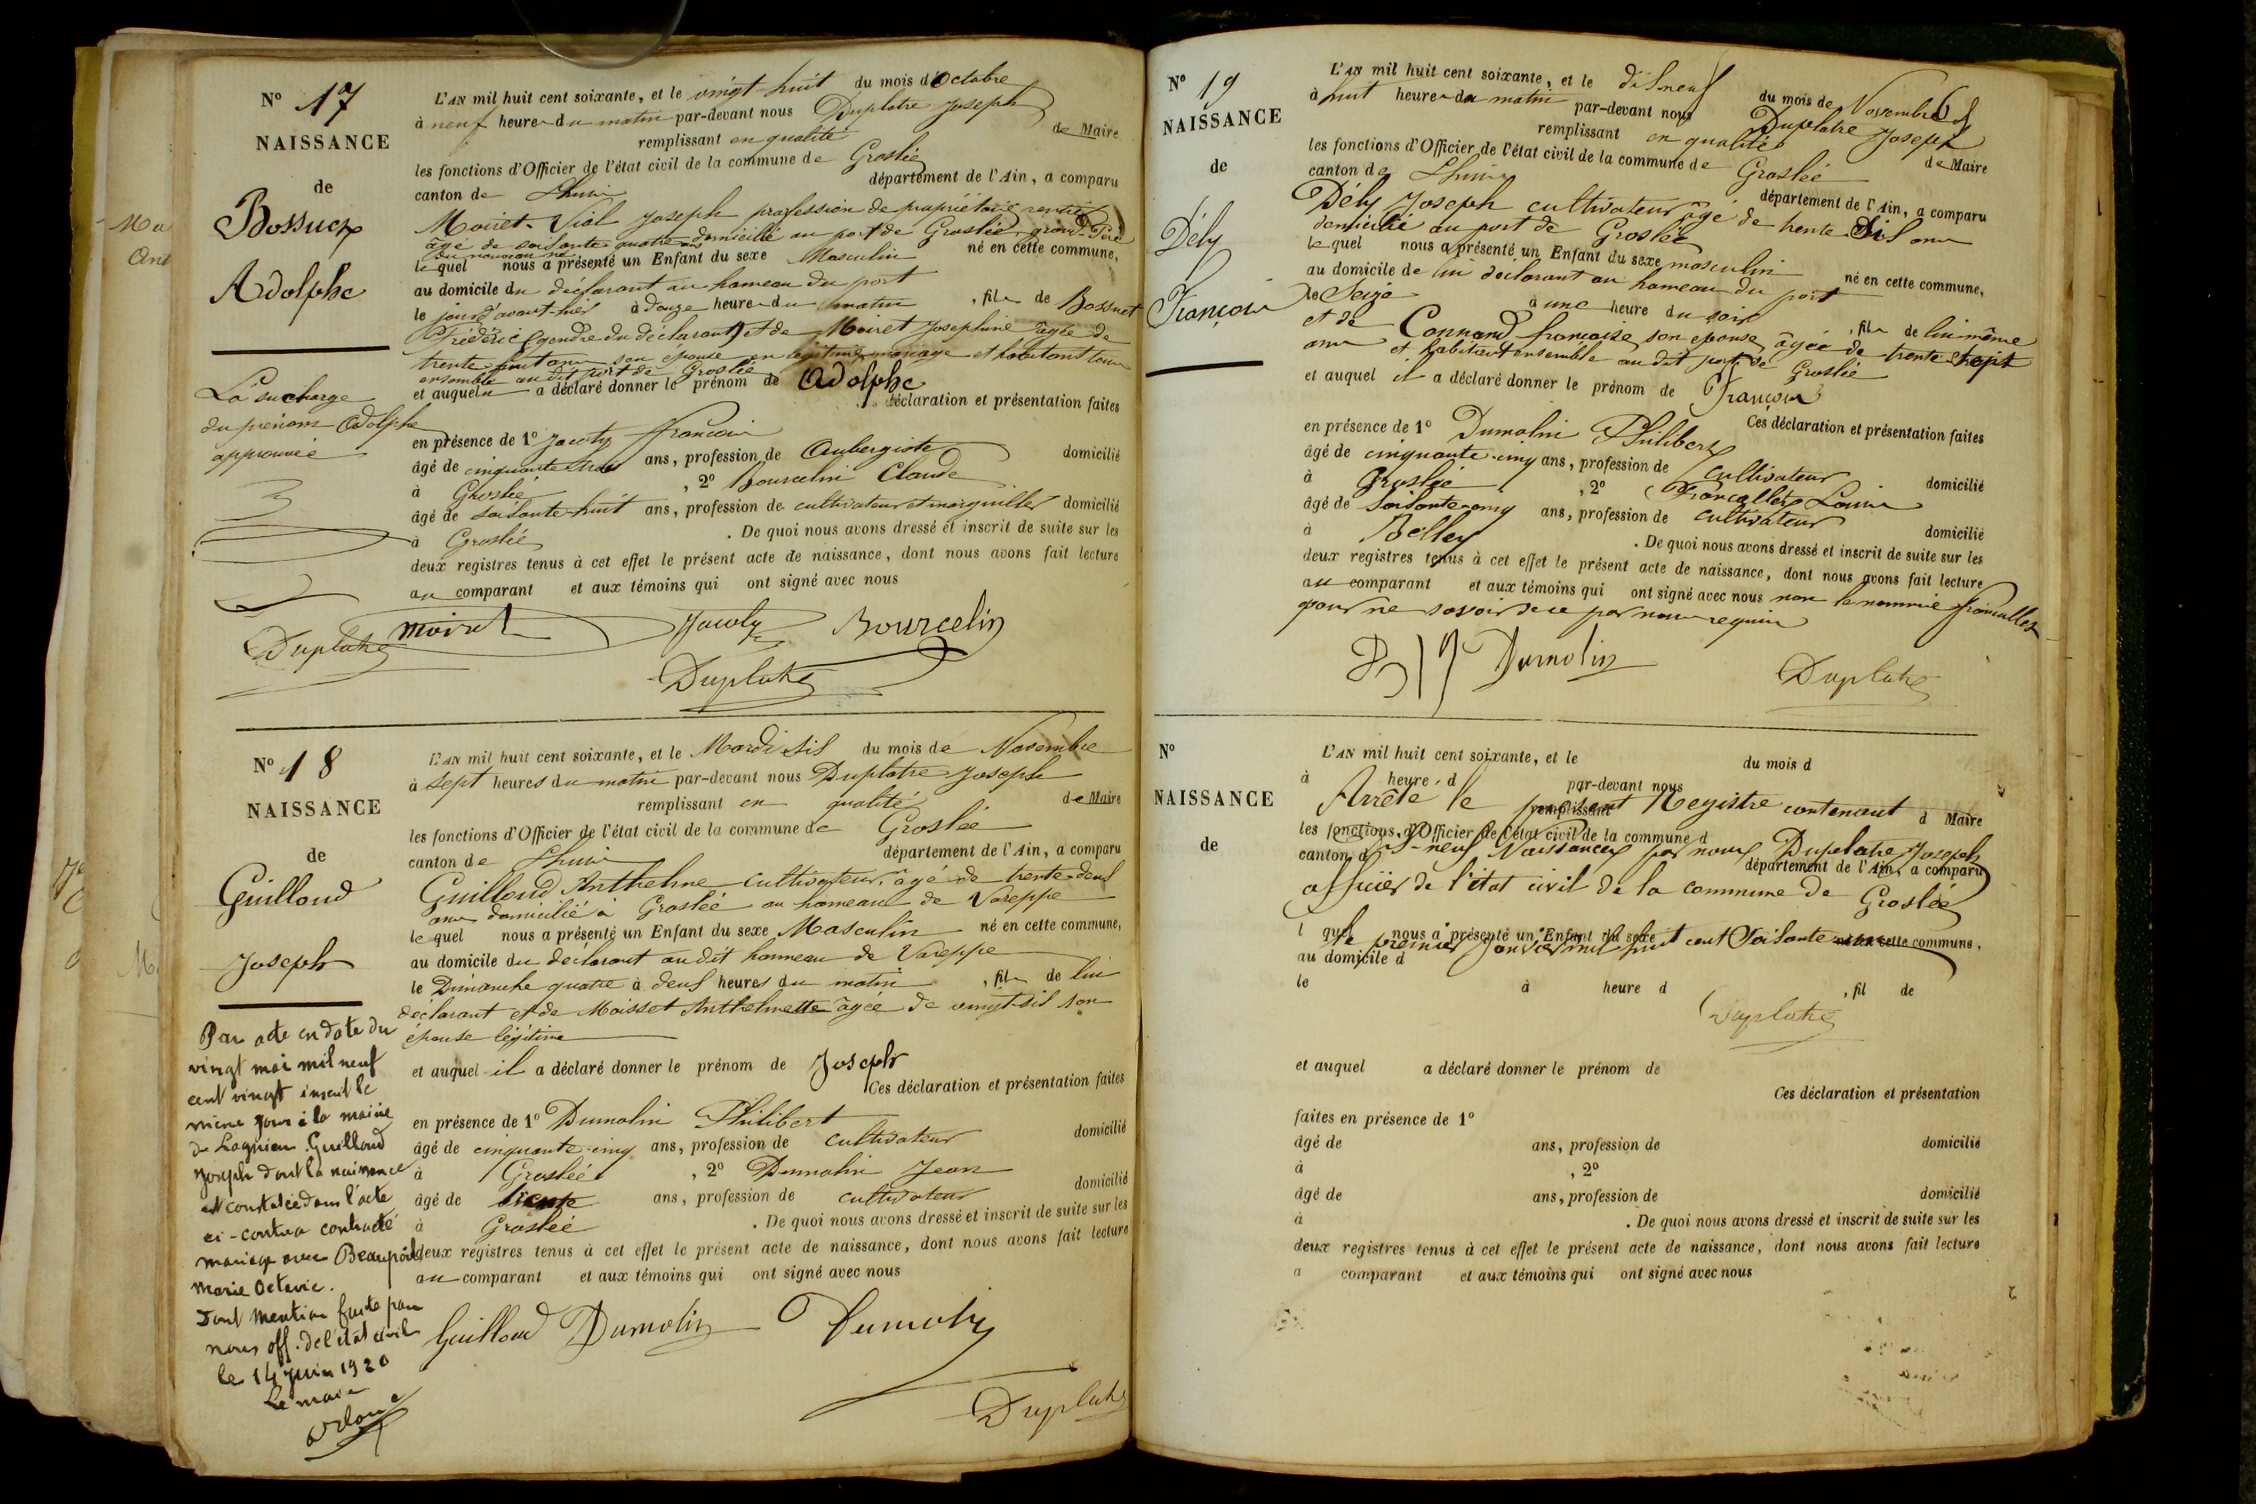 N° 17
NAISSANCE
de
Bossuet
Adolphe
La surcharge
du prénom Adolphe
approuvée
L'AN mil huit cent soixante, et le vingt-huit du mois d'Octobre
à neuf heures du matin par-devant nous Duplatre Joseph
remplissant en qualité de Maire
les fonctions d'Officier de l'état civil de la commune de Groslée
canton de Lhuis département de l'Ain, a comparu
Moiret-Vial Joseph profession de propriétaire rentier
âgé de soixante quatre ans domicilié au port de Groslée, grand-Père
du nouveau né
lequel nous a présenté un Enfant du sexe Masculin né en cette commune,
au domicile du déclarant au hameau du port
le jour d'avant-hier à douze heures du matin, fils de Bossuet
Frédéric (gendre du déclarant) et de Moiret Josephine âgée de
trente huit ans son épouse en légitime mariage et habitant tous
ensemble au dit port de Groslée
et auquel a déclaré donner le prénom de Adolphe
déclaration et présentation faites
en présence de 1° Jacoty François
âgé de cinquante trois ans, profession de Aubergiste domicilié
à Groslée, 2° Bourcelin Claude
âgé de soixante-huit ans, profession de cultivateur et marguiller domicilié
à Groslée. De quoi nous avons dressé et inscrit de suite sur les
deux registres tenus à cet effet le présent acte de naissance, dont nous avons fait lecture
au comparant et aux témoins qui ont signé avec nous
Duplatre Moiret Jacoty Bourcelin
Duplatre
N° 18
NAISSANCE
de
Guilloud
Joseph
Par acte en date du
vingt mai mil neuf
cent vingt inscrit le
même jour à la mairie
de Lagnieu Guilloud
Joseph dont la naissance
est constatée dans l'acte
ci-contre a contracté
mariage avec Beaupoil
Marie Octavie.
Dont mention faite par
nous off. de l'état civil
le 14 juin 1920
Le maire
L'AN mil huit cent soixante, et le Mardi six du mois de Novembre
à sept heures du matin par-devant nous Duplatre Joseph
remplissant en qualité de Maire
les fonctions d'Officier de l'état civil de la commune de Groslée
canton de Lhuis département de l'Ain, a comparu
Guilloud Anthelme cultivateur, âgé de trente-deux
ans domicilié à Groslée au hameau de Vareppe
lequel nous a présenté un Enfant du sexe Masculin né en cette commune,
au domicile du déclarant au dit hameau de Vareppe
le Dimanche quatre à deux heures du matin, fils de lui
déclarant et de Moisset Anthelmette âgée de vingt-six son
épouse légitime
et auquel il a déclaré donner le prénom de Joseph
Ces déclaration et présentation faites
en présence de 1° Dumolin Philibert
âgé de cinquante-cinq ans, profession de cultivateur domicilié
à Groslée, 2° Dumolin Jean
âgé de trente ans, profession de cultivateur domicilié
à Groslée. De quoi nous avons dressé et inscrit de suite sur les
deux registres tenus à cet effet le présent acte de naissance, dont nous avons fait lecture
au comparant et aux témoins qui ont signé avec nous
Guilloud Dumolin Dumolin
Duplatre
N° 19
NAISSANCE
de
Dély
François
L'AN mil huit cent soixante, et le dix-neuf du mois de Novembre
à huit heures du matin par-devant nous Duplatre Joseph
remplissant en qualité de Maire
les fonctions d'Officier de l'état civil de la commune de Groslée
canton de Lhuis département de l'Ain, a comparu
Dély Joseph cultivateur âgé de trente six ans
domicilié au port de Groslée
lequel nous a présenté un Enfant du sexe masculin né en cette commune,
au domicile de lui déclarant au hameau du port
le Seize à une heure du soir, fils de lui même
et de Connand françoise son épouse, âgée de trente sept
ans et habitant ensemble au dit port de Groslée
et auquel il a déclaré donner le prénom de François
Ces déclaration et présentation faites
en présence de 1° Dumolin Philibert
âgé de cinquante-cinq ans, profession de cultivateur domicilié
à Groslée, 2° Francallet Louis
âgé de soixante-cinq ans, profession de cultivateur domicilié
à Belley. De quoi nous avons dressé et inscrit de suite sur les
deux registres tenus à cet effet le présent acte de naissance, dont nous avons fait lecture
au comparant et aux témoins qui ont signé avec nous non le nommé Francallet
pour ne savoir de ce par nous requis
Dumolin Duplatre
N°
NAISSANCE
de
L'AN mil huit cent soixante, et le du mois d
à heure d par-devant nous
Arrêté le présent Registre contenant
remplissant d Maire
les fonctions d'Officier de l'état civil de la commune d
dix-neuf Naissances par nous Duplatre Joseph
canton d département de l'Ain, a comparu
officier de l'état civil de la commune de Groslée
l quel nous a présenté un Enfant du sexe né en cette commune,
le premier Janvier mil huit cent Soixante
au domicile d
le à heure d, fil de
Duplatre
et auquel a déclaré donner le prénom de
Ces déclaration et présentation
faites en présence de 1°
âgé de ans, profession de domicilié
à, 2°
âgé de ans, profession de domicilié
à. De quoi nous avons dressé et inscrit de suite sur les
deux registres tenus à cet effet le présent acte de naissance, dont nous avons fait lecture
a comparant et aux témoins qui ont signé avec nous